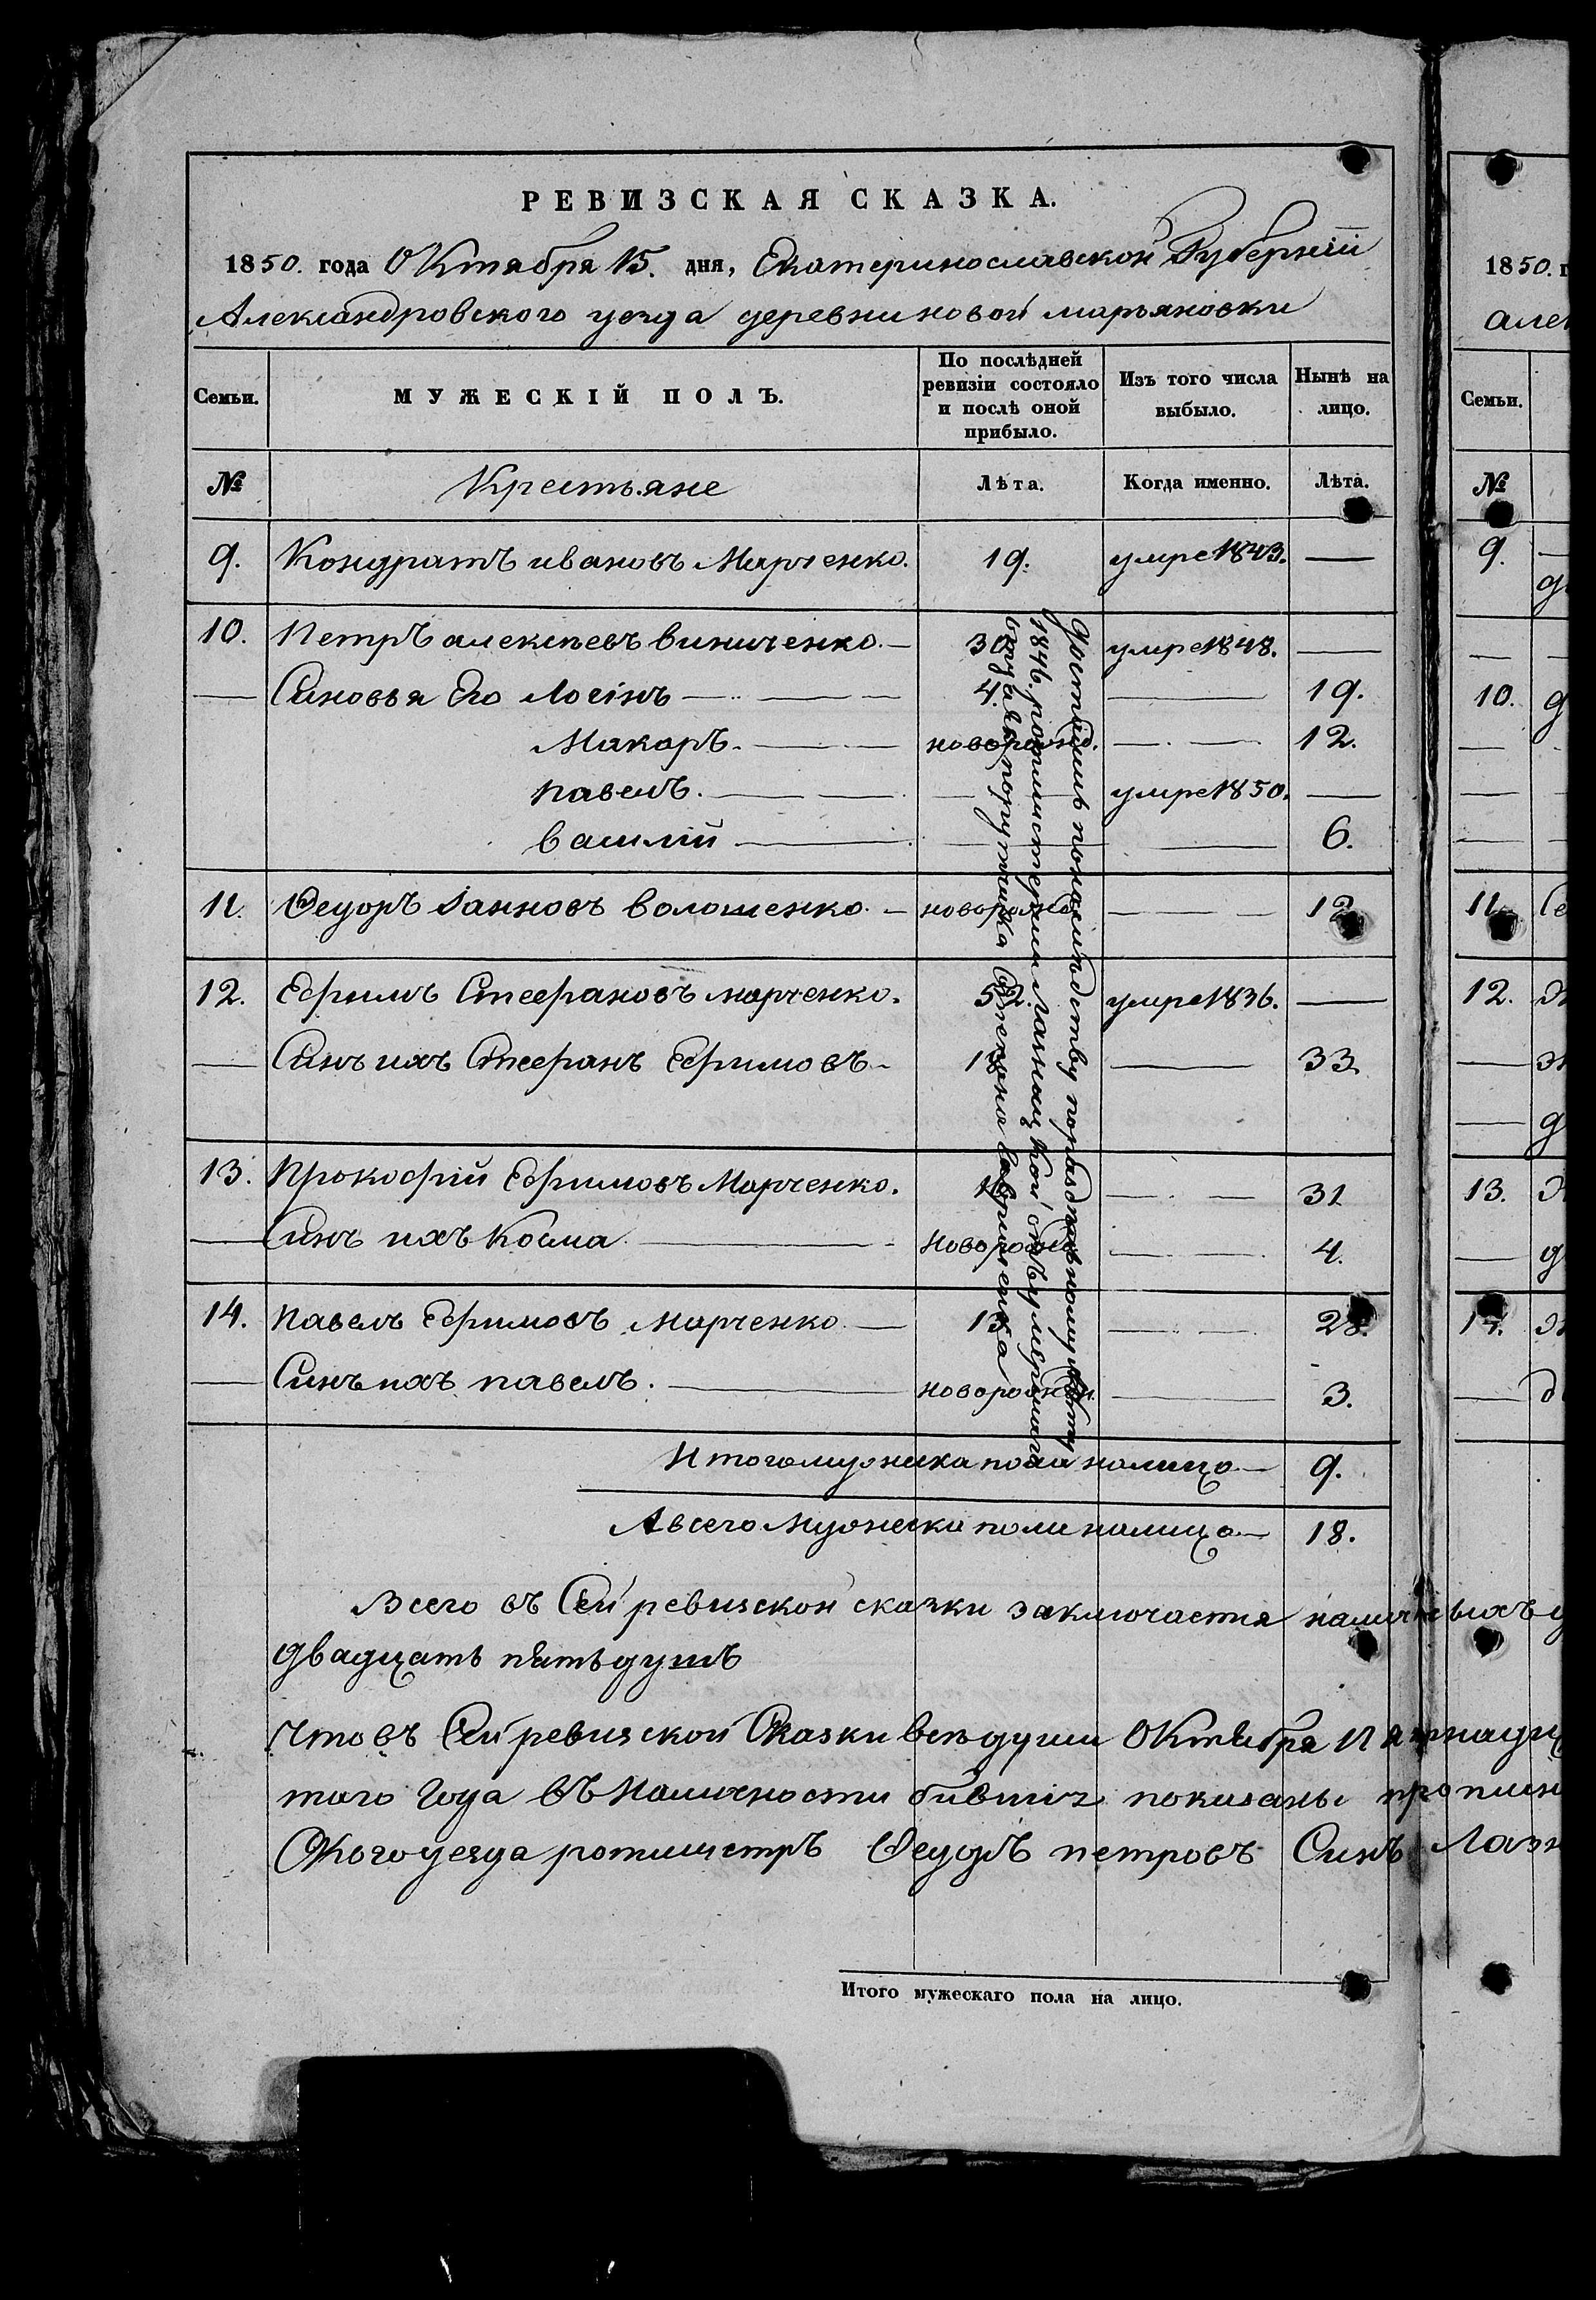 РЕВИЗСКАЯ СКАЗКА.
1850. года Октября 15. дня, Екатеринославской Губерніи
Александровского уезда деревни новой марьяновки
Семьи. МУЖЕСКІЙ ПОЛЪ. По послѣдней ревизіи состояло и послѣ оной прибыло. Изъ того числа выбыло. Нынѣ на лицо.
№ Крестьяне Лѣта. Когда именно. Лѣта.
9. Кондратъ ивановъ Марченко. 19. умре 1843. —
10. Петръ алексѣевъ виниченко. — 30 умре 1848. —
— Синовья Его Логінъ — 4. — 19.
Макаръ. — новорожд. — 12.
павелъ. — — умре 1850. —
василій — — — 6.
11. Федоръ іанновъ волошенко. — новорожд — 12
12. Ефимъ Стефановъ марченко. умре 1836. —
— Синъ ихъ Стефанъ Ефимовъ — 18 — 33.
13. Прокофій Ефимовъ Марченко. — 31
— Синъ ихъ Косма — новорожд — 4.
14. павелъ Ефимовъ марченко — 13 — 28.
— Синъ ихъ павелъ. — новорожден. — 3.
достались понаслѣдству
1846. ротмистером Лазнацкой отъ умершаго
брата поручика Степана
Итого мужеска пола налицо — 9.
А всего Мужеска пола налицо — 18.
Всего въ Сей ревизской сказки заключается наличныхъ
двадцать пять душъ
Что въ Сей ревизской Сказки всѣ души Октября Пятнадц
того Года въ Наличности бившіе показаны прописн
Ского уезда ротмистръ Федоръ петровъ Синъ Лазн
Итого мужескаго пола на лицо.
1850. г
алек
Семьи.
№
9.
10.
11.
12.
13.
14.